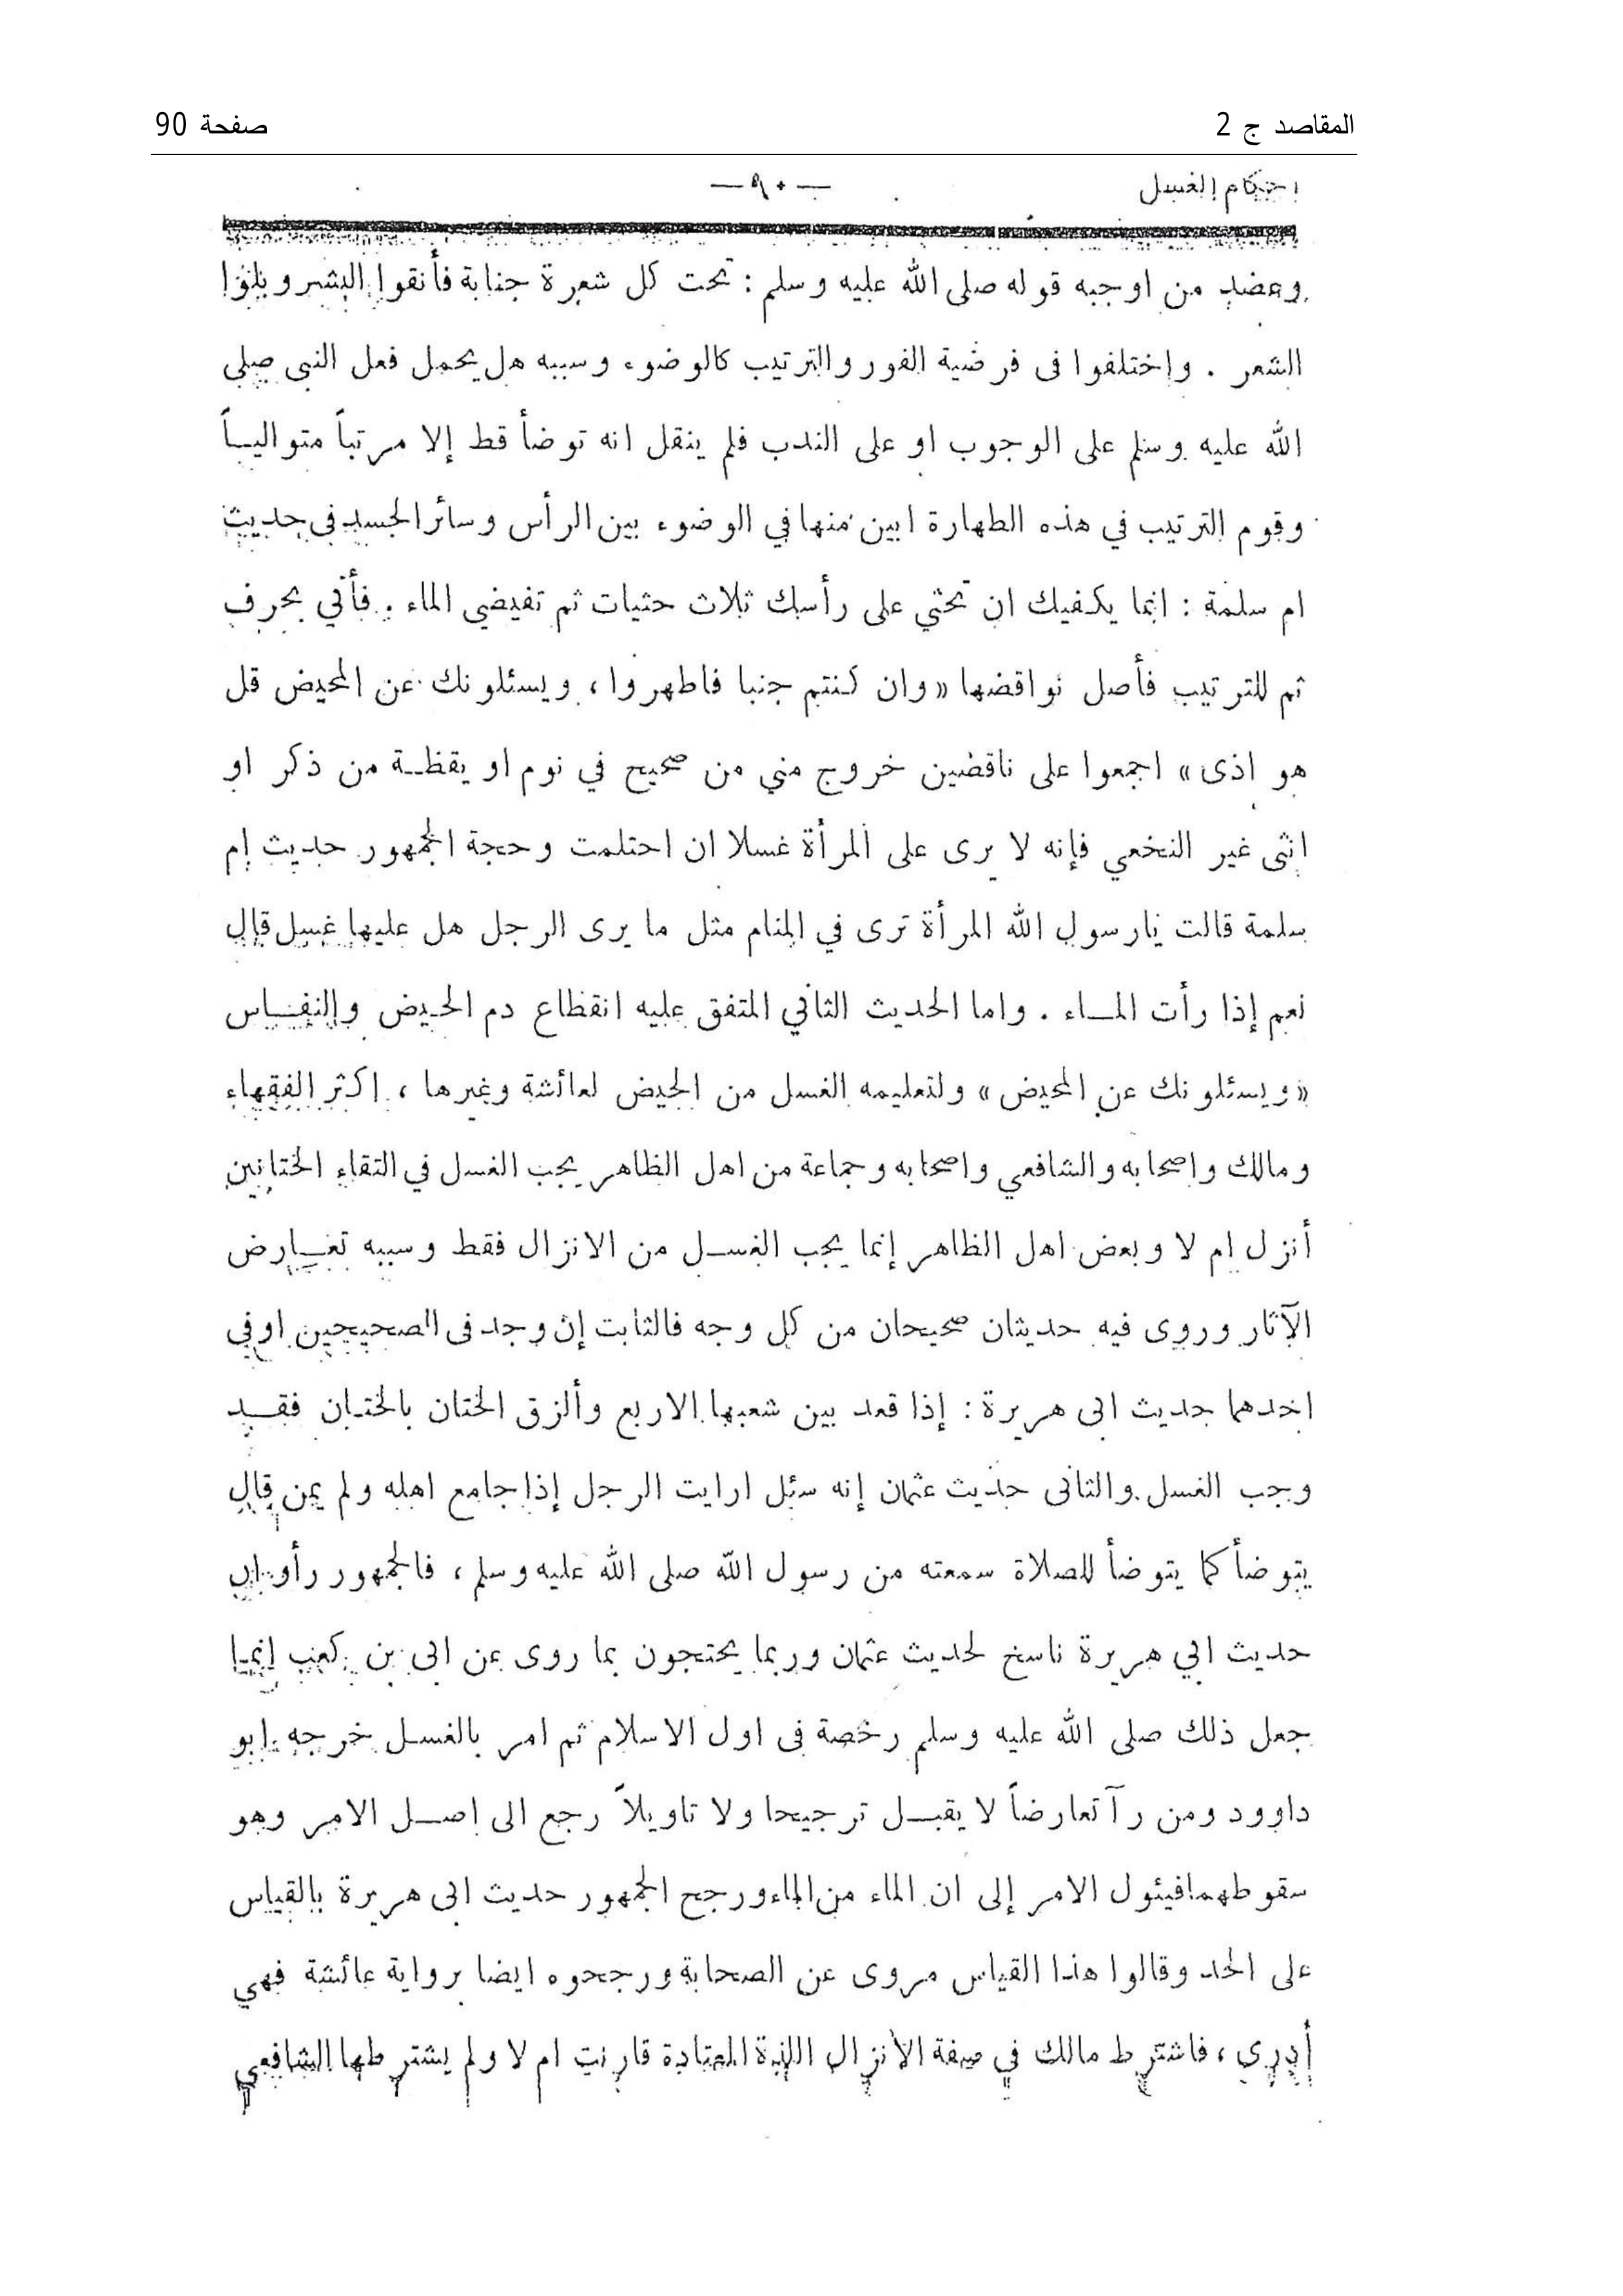 المقاصد ج 2
صفحة 90
احكام الغسل
— ٩٠ —
وعضد من اوجبه قوله صلى الله عليه وسلم : تحت كل شعرة جنابة فأنقوا البشر وبلوا
الشعر . واختلفوا فى فرضية الفور والترتيب كالوضوء وسببه هل يحمل فعل النبى صلى
الله عليه وسلم على الوجوب او على الندب فلم ينقل انه توضأ قط إلا مرتباً متوالياً
وقوم الترتيب في هذه الطهارة ابين منها في الوضوء بين الرأس وسائر الجسد فى حديث
ام سلمة : انما يكفيك ان تحثي على رأسك ثلاث حثيات ثم تفيضي الماء . فأتي بحرف
ثم للترتيب فأصل نواقضها «وان كنتم جنبا فاطهروا ، ويسئلونك عن المحيض قل
هو اذى» اجمعوا على ناقضين خروج مني من صحيح في نوم او يقظة من ذكر او
انثى غير النخعي فإنه لا يرى على المرأة غسلا ان احتلمت وحجة الجمهور حديث ام
سلمة قالت يارسول الله المرأة ترى في المنام مثل ما يرى الرجل هل عليها غسل قال
نعم إذا رأت الماء . واما الحديث الثاني المتفق عليه انقظاع دم الحيض والنفاس
«ويسئلونك عن المحيض» ولتعليمه الغسل من الحيض لعائشة وغيرها ، اكثر الفقهاء
ومالك واصحابه والشافعي واصحابه وجماعة من اهل الظاهر يجب الغسل في التقاء الختانين
أنزل ام لا وبعض اهل الظاهر إنما يجب الغسل من الانزال فقط وسببه تعارض
الآثار وروى فيه حديثان صحيحان من كل وجه فالثابت إن وجد فى الصحيحين اوفي
احدهما حديث ابى هريرة : إذا قعد بين شعبها الاربع وألزق الختان بالختان فقد
وجب الغسل والثانى حديث عثمان إنه سئل ارايت الرجل إذا جامع اهله ولم يمن قال
يتوضأ كما يتوضأ للصلاة سمعته من رسول الله صلى الله عليه وسلم ، فالجمهور رأوا ان
حديث ابي هريرة ناسخ لحديث عثمان وربما يحتجون بما روى عن ابى بن كعب إنما
جعل ذلك صلى الله عليه وسلم رخصة فى اول الاسلام ثم امر بالغسل خرجه ابو
داوود ومن رآ تعارضاً لا يقبل ترجيحا ولا تاويلاً رجع الى اصل الامر وهو
سقوطهما فيئول الامر إلى ان الماء من الماء ورجح الجمهور حديث ابى هريرة بالقياس
على الحد وقالوا هذا القياس مروى عن الصحابة ورجحوه ايضا برواية عائشة فهي
أدرى ، فاشترط مالك في صفة الانزال اللذة المعتادة قارنت ام لا ولم يشترطها الشافعي